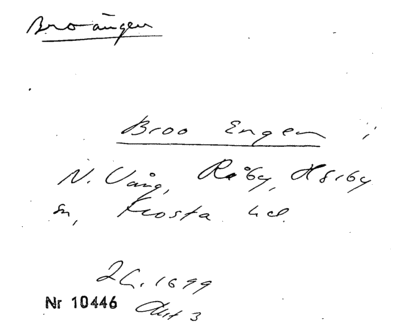 Broängen
Broo Engen i
N. Vång, Råby, Hörby
sn, Frosta hd.
LC. 1699
Nr 10446 Akt 3